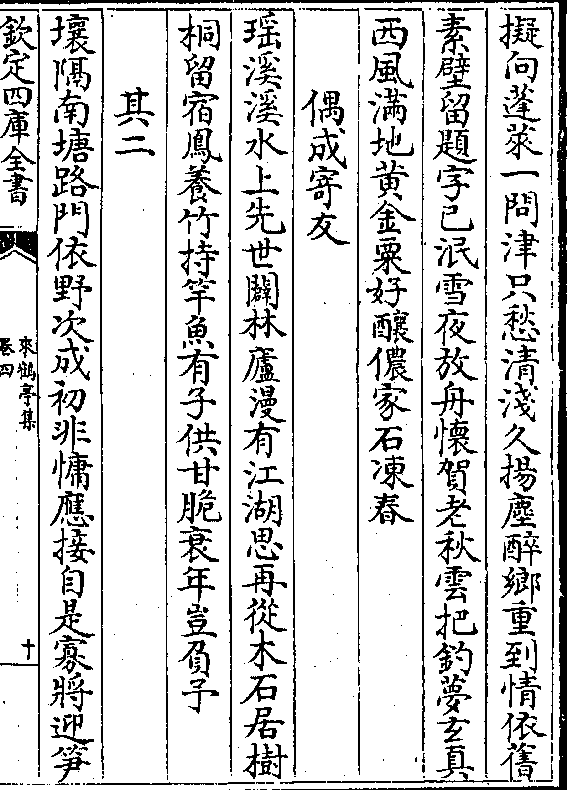 擬向蓬萊一問津只愁清淺久揚塵醉鄉重到情依舊
素壁留題字已泯雪夜放舟懷賀老秋雲把釣夢玄真
西風滿地黄金粟好釀儂家石凍春
偶成寄友
瑶溪溪水上先世闢林廬漫有江湖思再從木石居樹
桐留宿鳳養竹持竿魚有子供甘脆衰年豈負予
其二
壤隔南塘路門依野次成初非慵應接自是寡將迎笋
欽定四庫全書
來鶴亭集
卷四
十